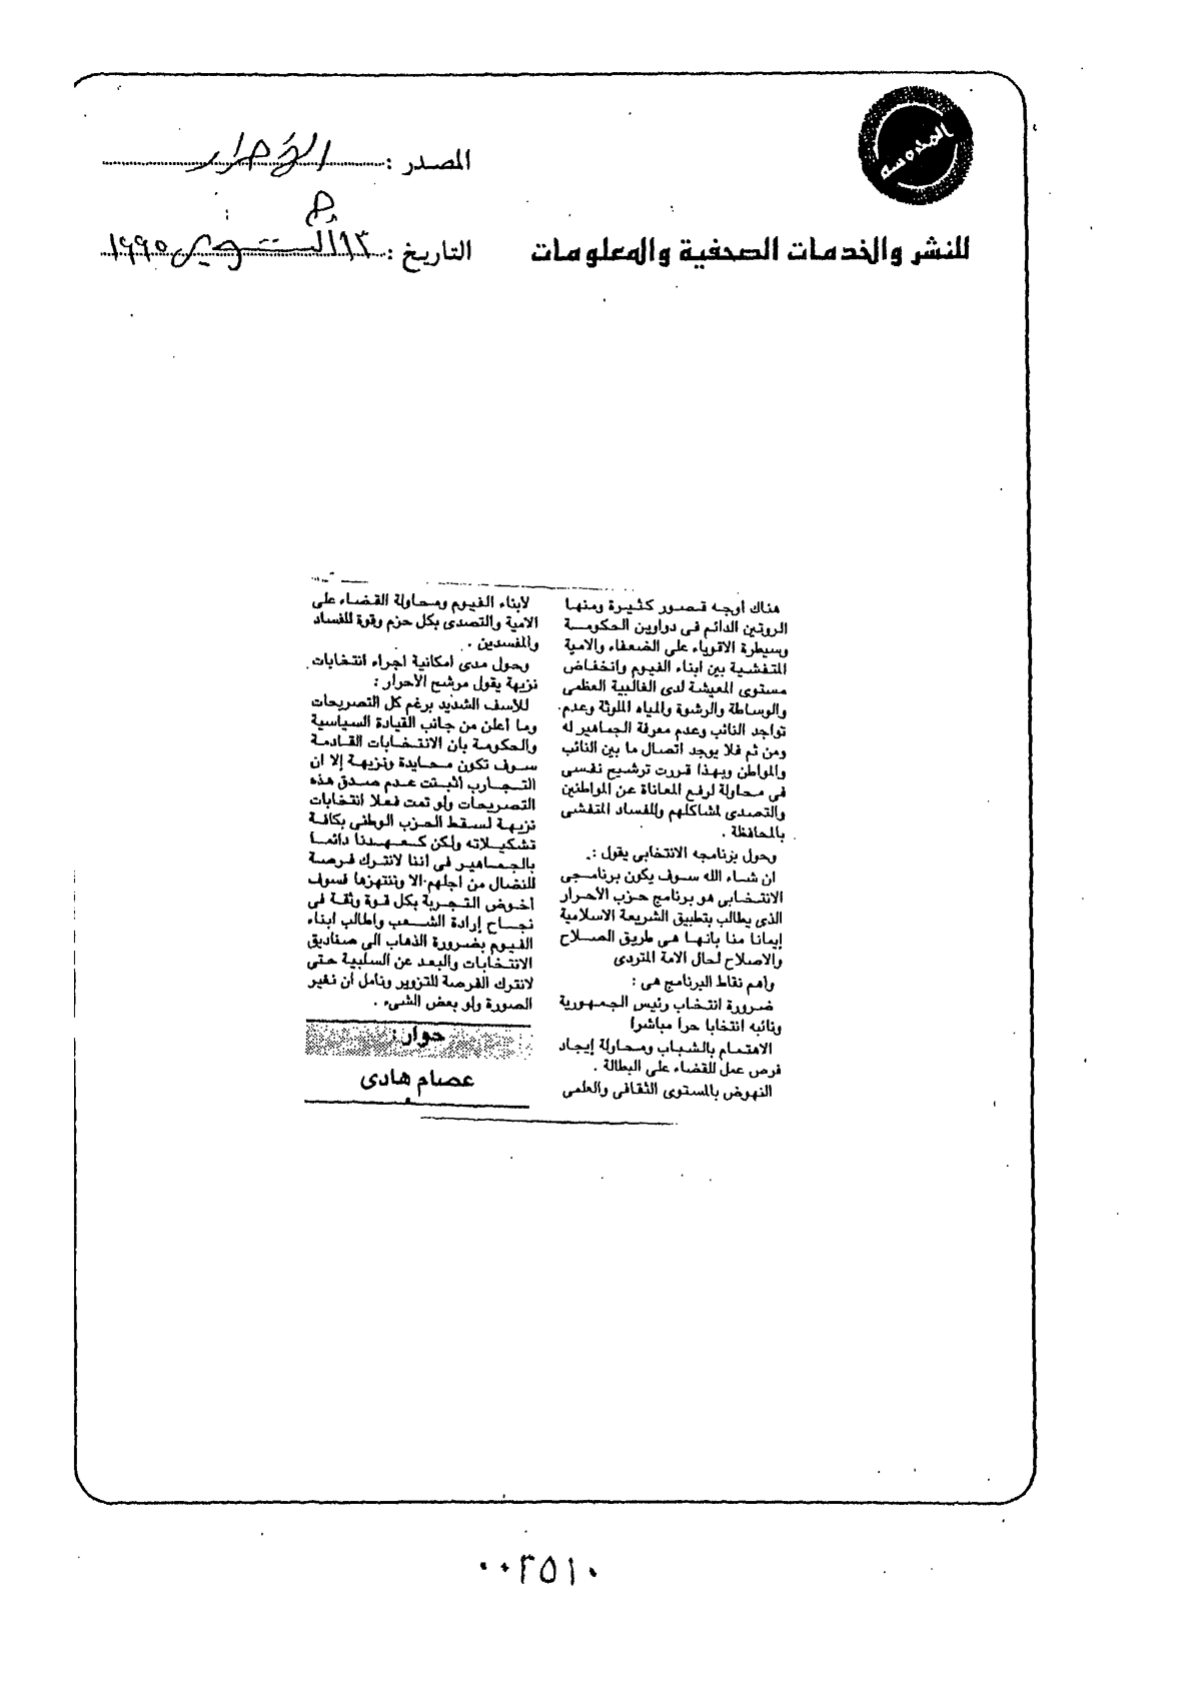 المحروسة
للنشر والخدمات الصحفية والمعلومات
المصدر : الأحرار
التاريخ : ١٣ أكتوبر ١٩٩٥
هناك أوجه قصور كثيرة ومنها
الروتين الدائم فى دواوين الحكومة
وسيطرة الاقوياء على الضعفاء والامية
المتفشية بين ابناء الفيوم وانخفاض
مستوى المعيشة لدى الغالبية العظمى
والوساطة والرشوة والمياه الملوثة وعدم
تواجد النائب وعدم معرفة الجماهير له
ومن ثم فلا يوجد اتصال ما بين النائب
والمواطن وبهذا قررت ترشيح نفسى
فى محاولة لرفع المعاناة عن المواطنين
والتصدى لمشاكلهم وللفساد المتفشى
بالمحافظة .
وحول برنامجه الانتخابى يقول :
ان شاء الله سوف يكون برنامجى
الانتخابى هو برنامج حزب الأحرار
الذى يطالب بتطبيق الشريعة الاسلامية
إيمانا منا بانها هى طريق الصلاح
والاصلاح لحال الامة المتردى
وأهم نقاط البرنامج هى :
ضرورة انتخاب رئيس الجمهورية
ونائبه انتخابا حرا مباشرا
الاهتمام بالشباب ومحاولة إيجاد
فرص عمل للقضاء على البطالة .
النهوض بالمستوى الثقافى والعلمى
لأبناء الفيوم ومحاولة القضاء على
الامية والتصدى بكل حزم وقوة للفساد
والمفسدين .
وحول مدى امكانية اجراء انتخابات
نزيهة يقول مرشح الأحرار :
للأسف الشديد برغم كل التصريحات
وما أعلن من جانب القيادة السياسية
والحكومة بان الانتخابات القادمة
سوف تكون محايدة ونزيهة إلا ان
التجارب أثبتت عدم صدق هذه
التصريحات ولو تمت فعلا انتخابات
نزيهة لسقط الحزب الوطنى بكافة
تشكيلاته ولكن كعهدنا دائما
بالجماهير فى اننا لانترك فرصة
للنضال من أجلهم الا وننتهزها فسوف
أخوض التجربة بكل قوة وثقة فى
نجاح إرادة الشعب واطالب ابناء
الفيوم بضرورة الذهاب الى صناديق
الانتخابات والبعد عن السلبية حتى
لانترك الفرصة للتزوير ونأمل أن نغير
الصورة ولو بعض الشىء .
حوار :
عصام هادى
٠٠٢٥١٠